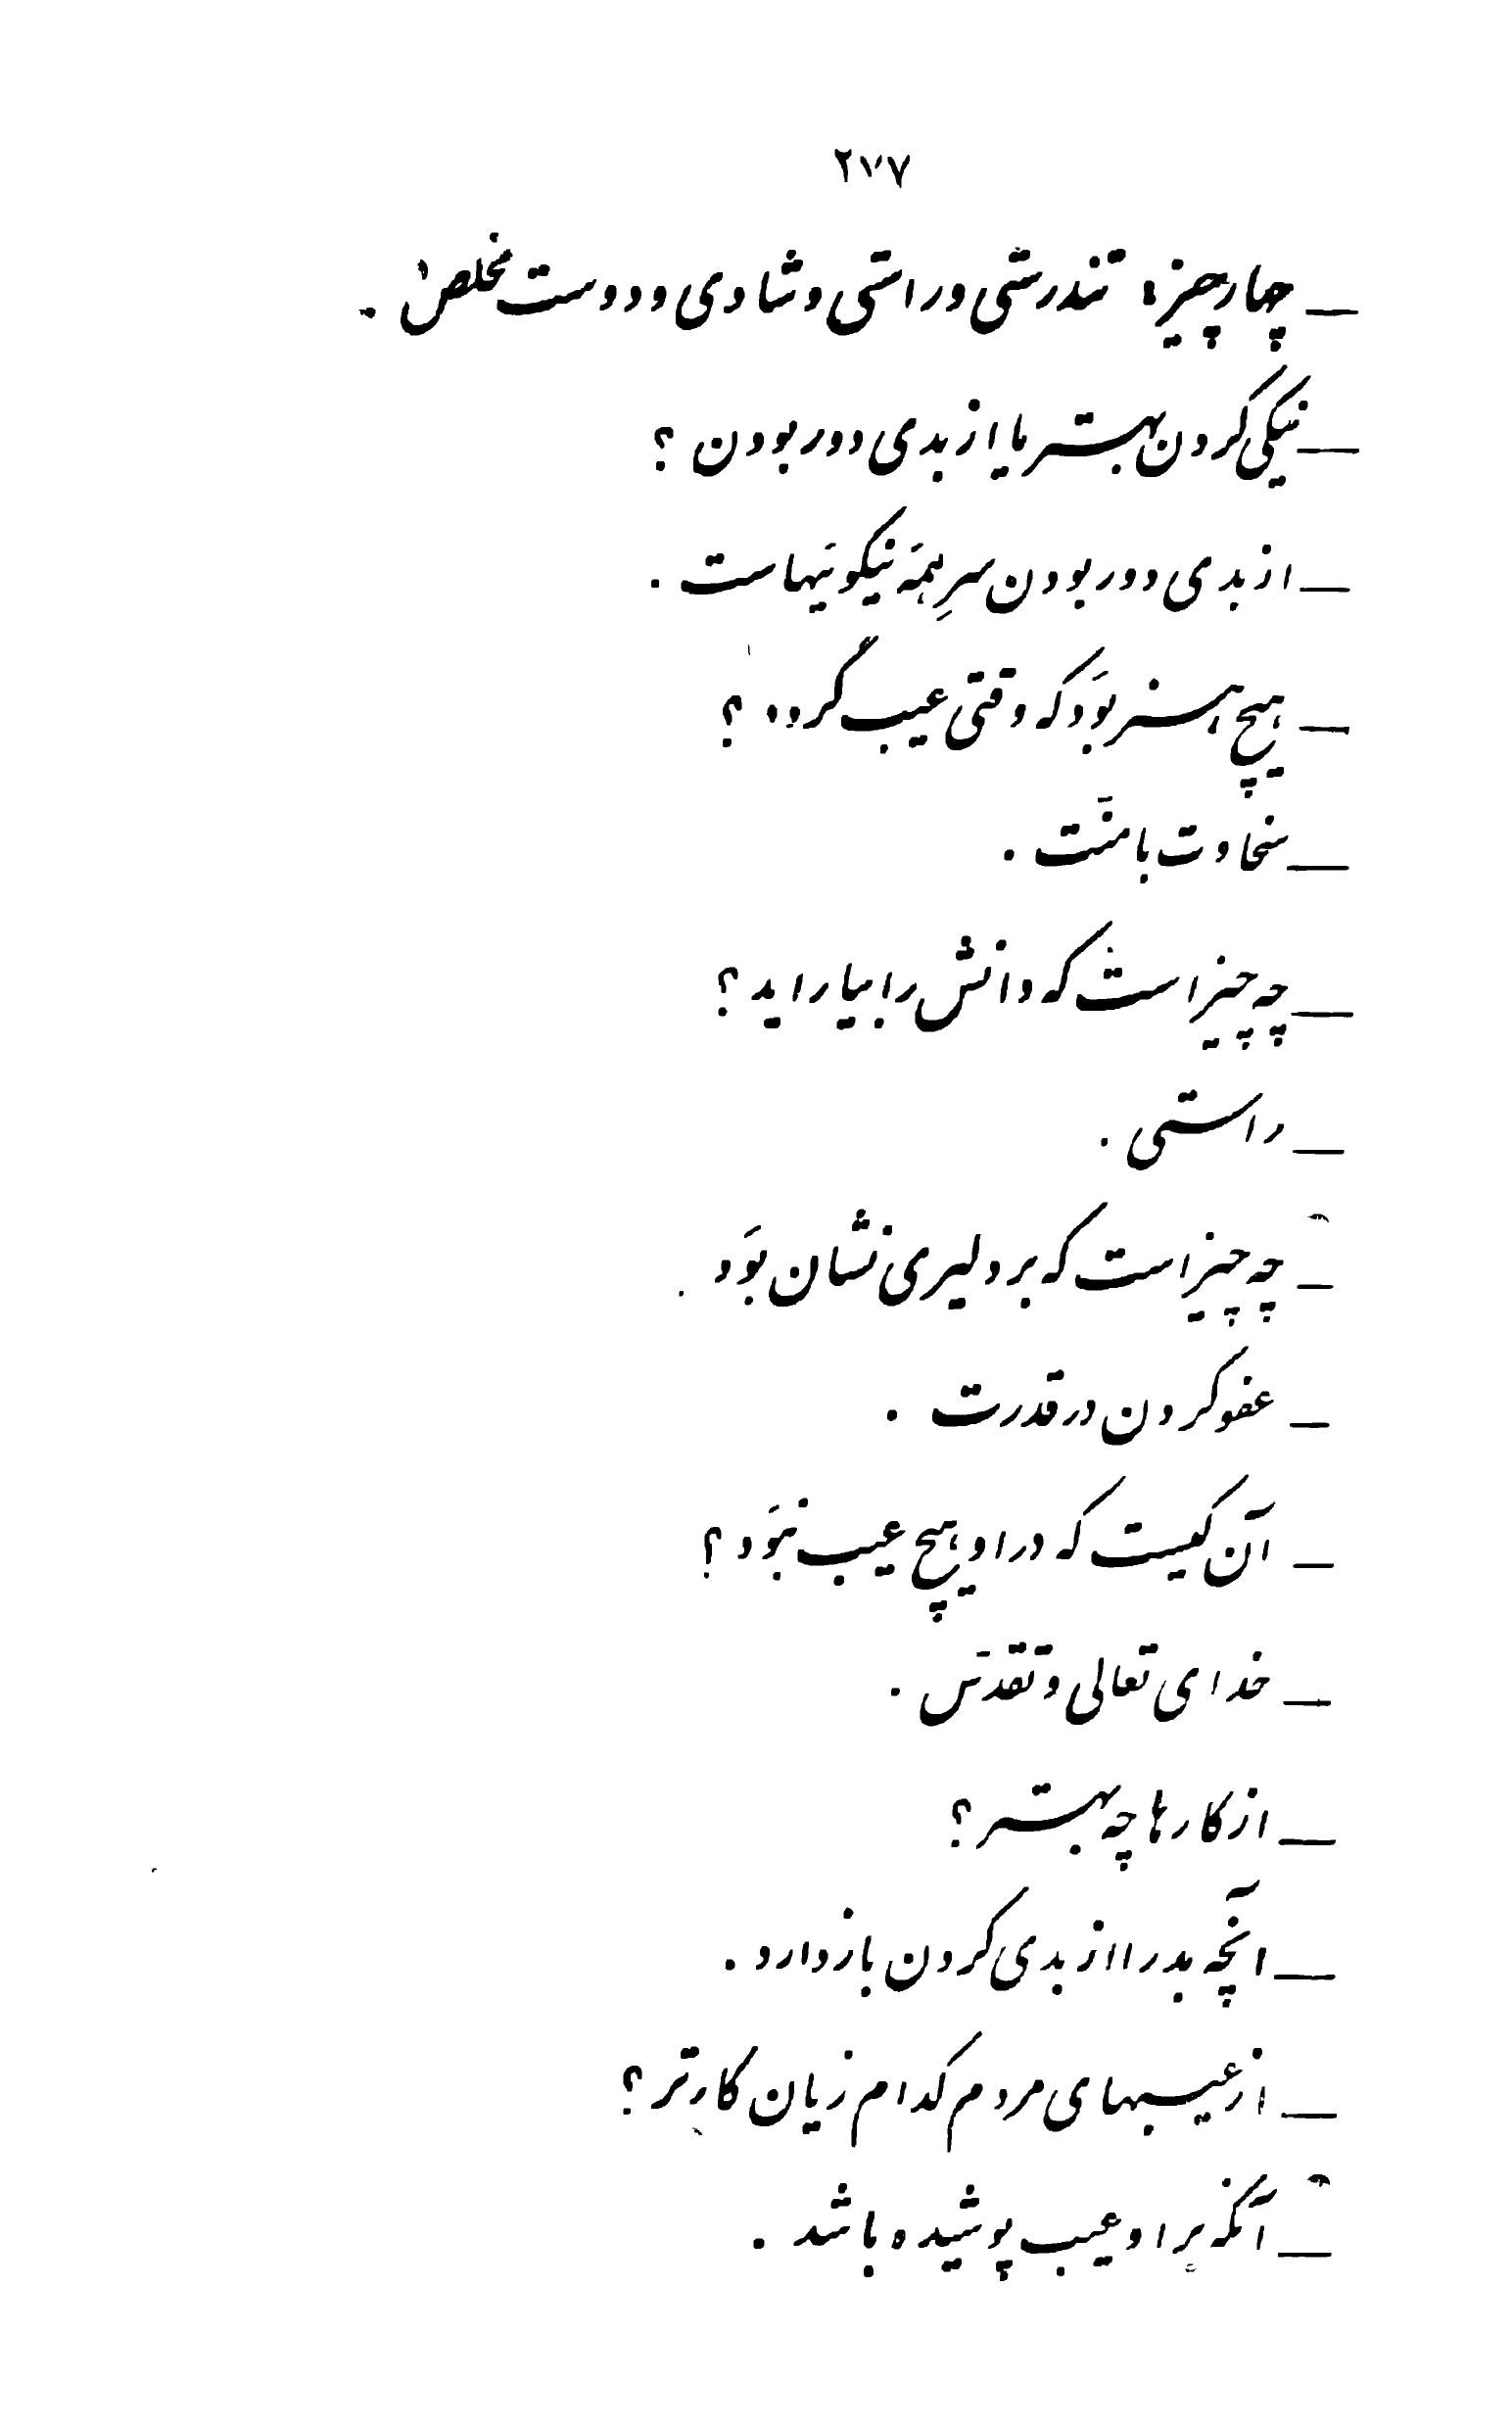 ۲۷۷
_ چهار چیز: تندرستی و راستی و شادی و دوست مخلص.
_ نیکی کردن بهتر یا از بدی دور بودن؟
_ از بدی دور بودن سرِ همَه نیکوئیهاست.
_ هیچ هنر بوَد که وقتی عیب گردد؟
_ سخاوت با منّت.
_ چه چیز است که دانش را بیاراید؟
_ راستی.
_ چه چیز است که بر دلیری نشان بوَد.
_ عفو کردن در قدرت.
_ آن کیست که در او هیچ عیب نبوَد؟
_ خدای تعالی و تقدس.
_ از کارها چه بهتر؟
_ آنچه بد را از بدی کردن باز دارد.
_ از عیبهای مردم کدام زیان کارتر؟
_ آنکه بر او عیب پوشیده باشد.